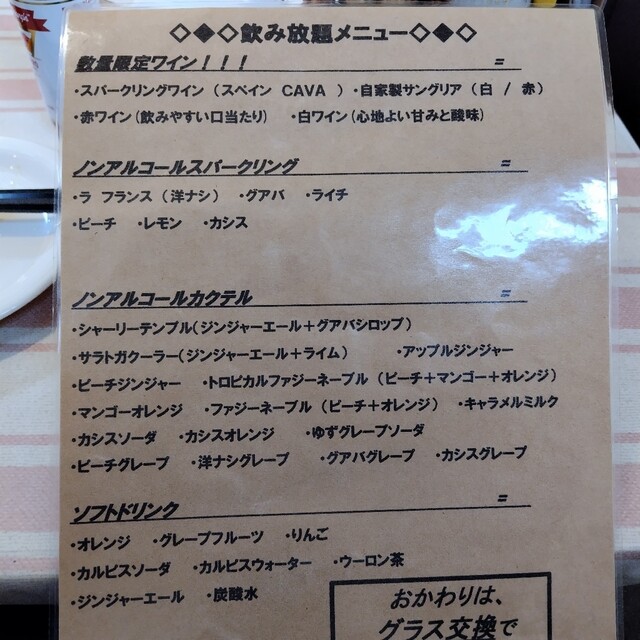 ◇◆◇飲み放題メニュー◇◆◇
数量限定ワイン！！！ =
・スパークリングワイン（スペイン CAVA ）・自家製サングリア（白 / 赤）
・赤ワイン(飲みやすい口当たり) ・白ワイン(心地よい甘みと酸味)
ノンアルコールスパークリング =
・ラ フランス（洋ナシ） ・グアバ ・ライチ
・ピーチ ・レモン ・カシス
ノンアルコールカクテル =
・シャーリーテンプル(ジンジャーエール＋グアバシロップ)
・サラトガクーラー(ジンジャーエール＋ライム) ・アップルジンジャー
・ピーチジンジャー ・トロピカルファジーネーブル（ピーチ＋マンゴー＋オレンジ）
・マンゴーオレンジ ・ファジーネーブル（ピーチ＋オレンジ） ・キャラメルミルク
・カシスソーダ ・カシスオレンジ ・ゆずグレープソーダ
・ピーチグレープ ・洋ナシグレープ ・グアバグレープ ・カシスグレープ
ソフトドリンク =
・オレンジ ・グレープフルーツ ・りんご
・カルピスソーダ ・カルピスウォーター ・ウーロン茶
・ジンジャーエール ・炭酸水
おかわりは、
グラス交換で